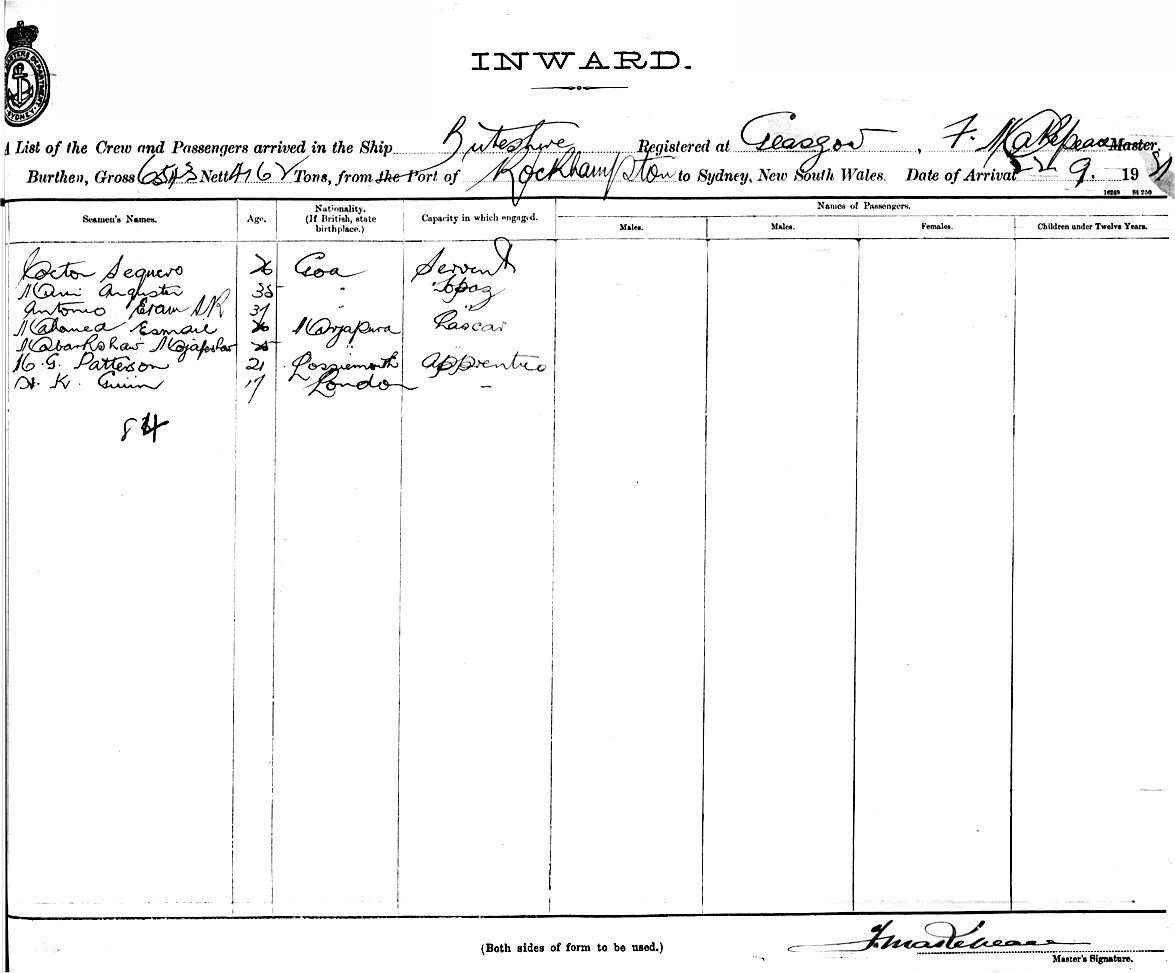 INWARD.
A List of the Crew and Passengers arrived in the Ship Buteshire Registered at Glasgow, F. Makepeace Master,
Burthen, Gross 6543 Nett 4162 Tons, from the Port of Rockhampton to Sydney, New South Wales. Date of Arrival 22 9. 19
16249 84 250
Seamen's Names. Age. Nationality. (If British, state birthplace.) Capacity in which engaged. Names of Passengers.
Males. Males. Females. Children under Twelve Years.
Sequero 26 Goa Servant
Augustu 38 " Topaz
Antonio 37 "
Mahomed Esmail 26 Lascar
25 "
G. Patterson 21 Lossiemouth Apprentice
K. 17 London "
84
(Both sides of form to be used.)
F. Makepeace
Master's Signature.